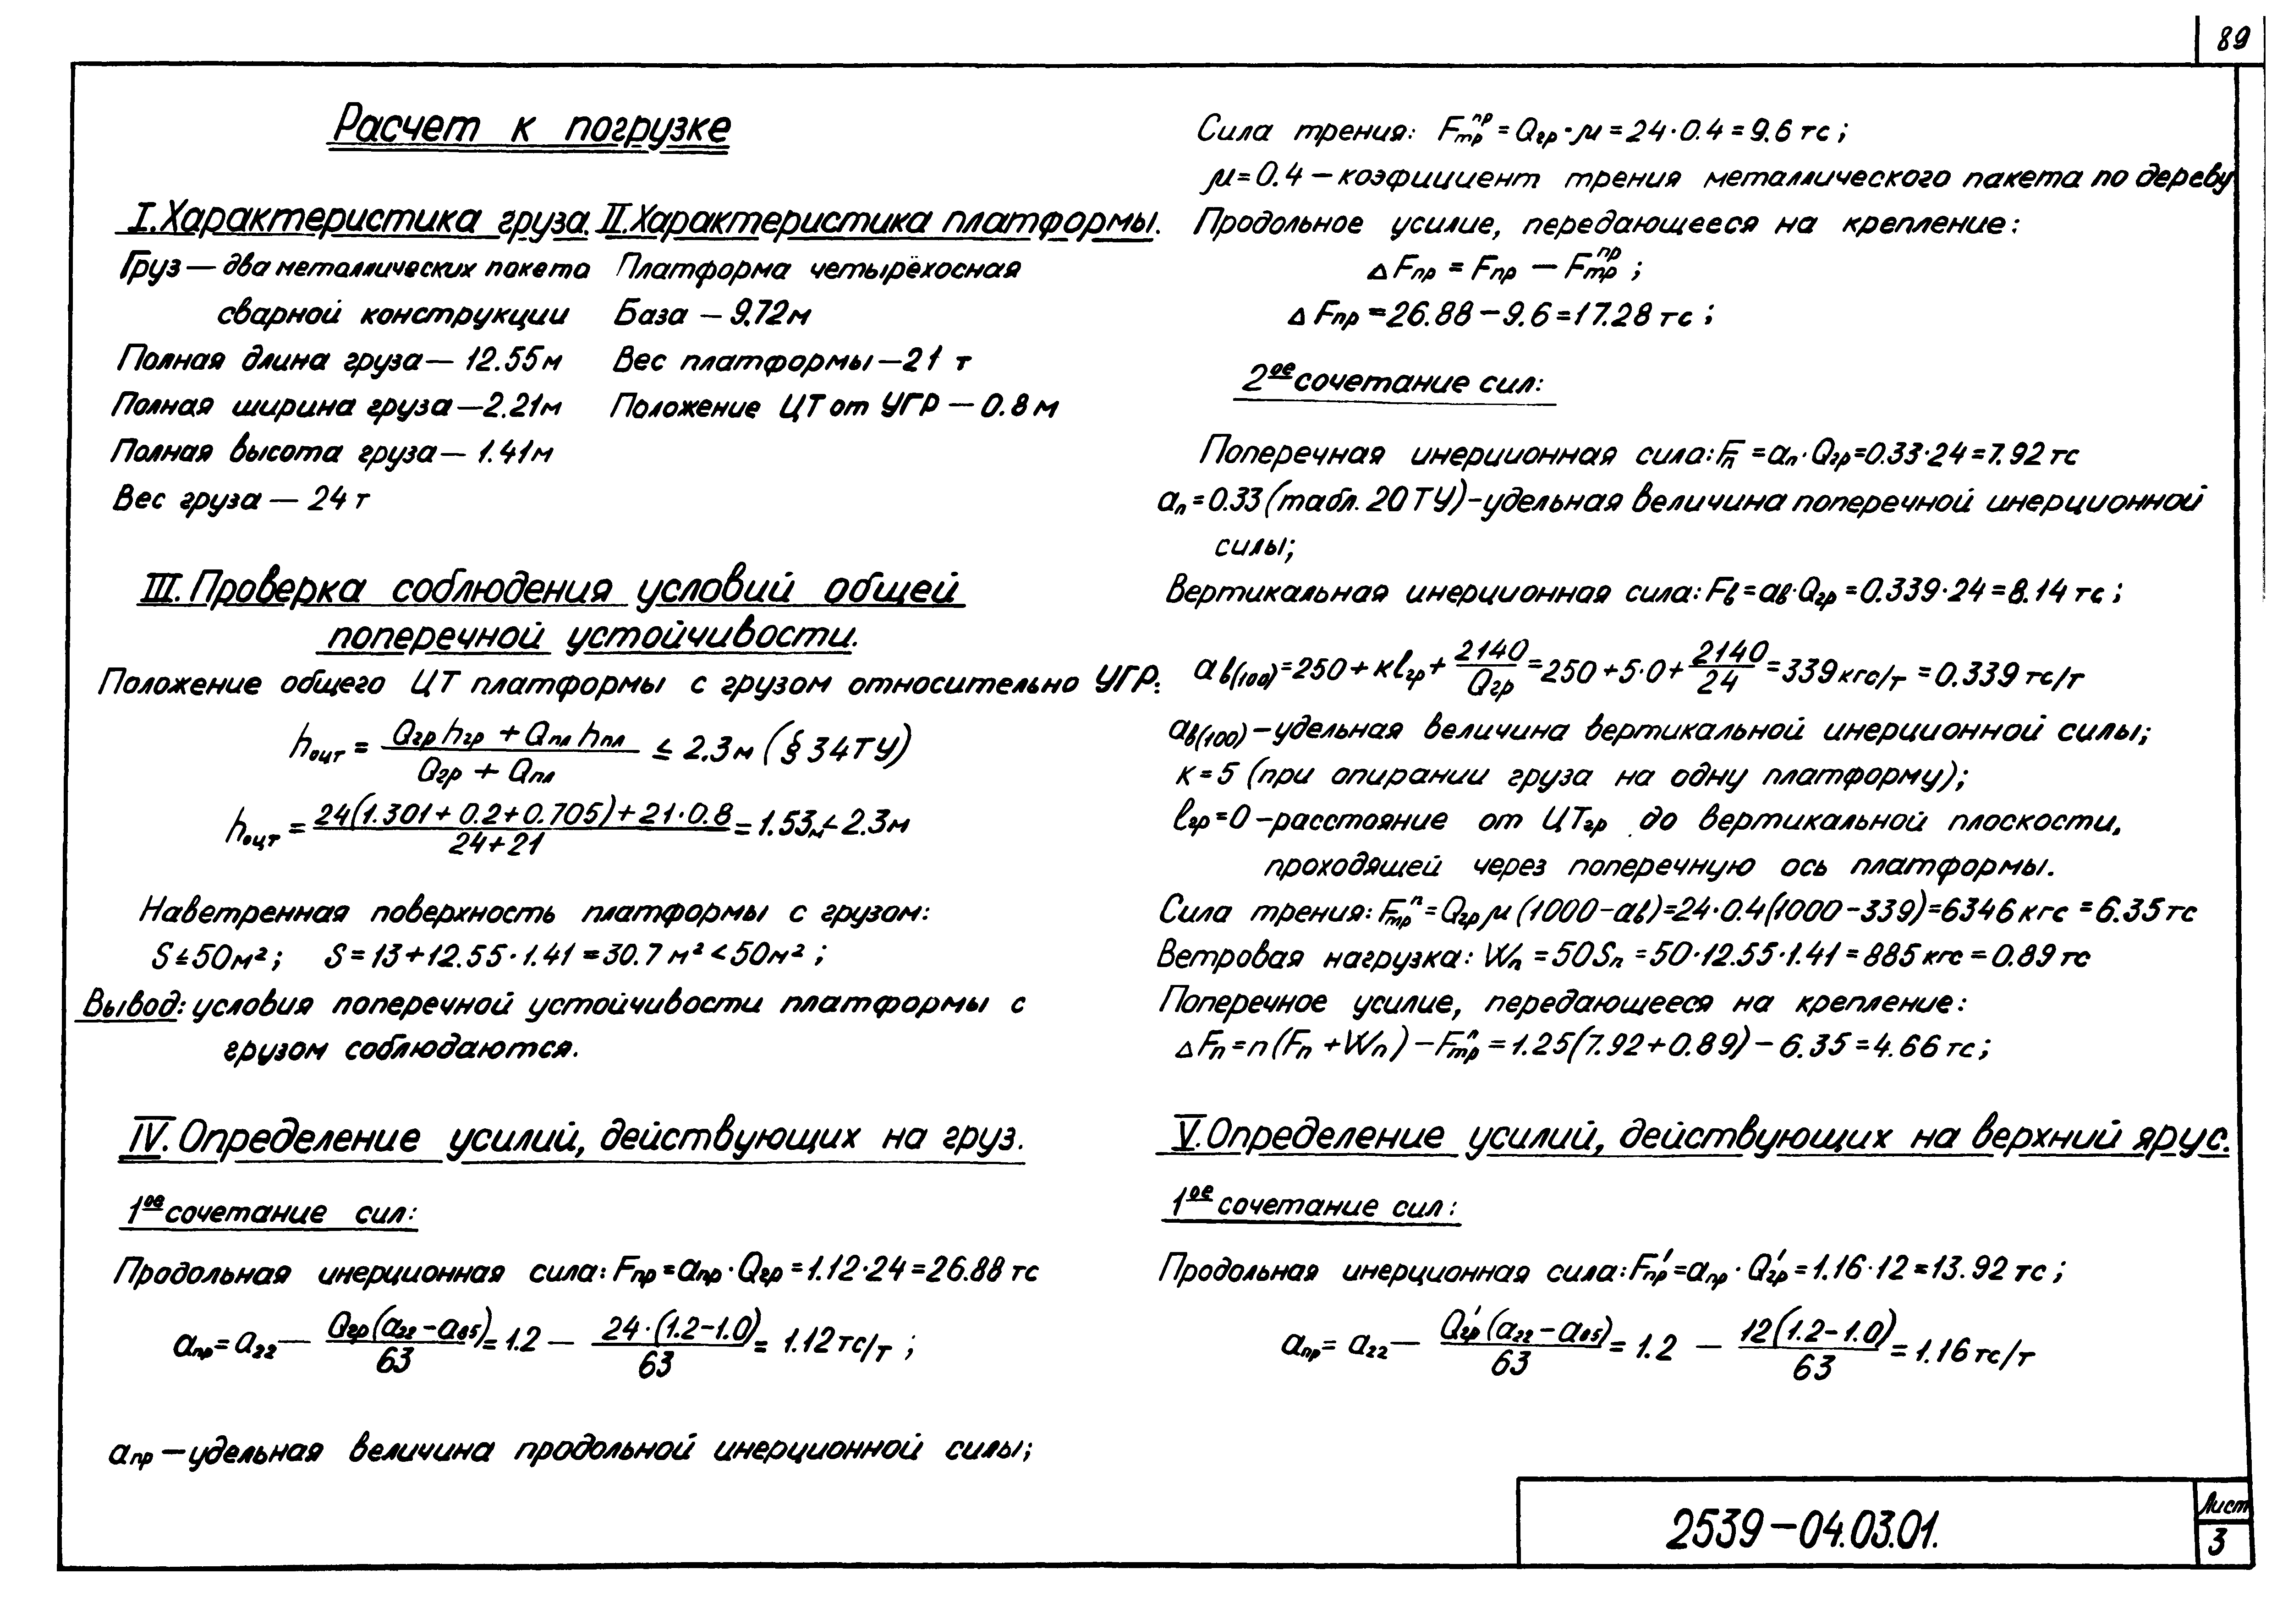 89
Расчет к погрузке
I. Характеристика груза.
Груз — два металлических пакета
сварной конструкции
Полная длина груза — 12.55м
Полная ширина груза — 2.21м
Полная высота груза — 1.41м
Вес груза — 24 т
II. Характеристика платформы.
Платформа четырёхосная
База — 9.72м
Вес платформы — 21 т
Положение ЦТ от УГР — 0.8 м
III. Проверка соблюдения условий общей
поперечной устойчивости.
Положение общего ЦТ платформы с грузом относительно УГР:
hоцт = (Qгр hгр + Qпл hпл) / (Qгр + Qпл) ≤ 2.3м (§ 34 ТУ)
hоцт = (24(1.301 + 0.2 + 0.705) + 21·0.8) / (24+21) = 1.53м < 2.3м
Наветренная поверхность платформы с грузом:
S ≤ 50м²; S = 13 + 12.55·1.41 = 30.7 м² < 50м²;
Вывод: условия поперечной устойчивости платформы с
грузом соблюдаются.
IV. Определение усилий, действующих на груз.
1ое сочетание сил:
Продольная инерционная сила: Fпр = aпр·Qгр = 1.12·24 = 26.88 тс
aпр = a22 — Qгр(a22 − a85) / 63 = 1.2 — 24·(1.2−1.0) / 63 = 1.12 тс/т ;
aпр — удельная величина продольной инерционной силы;
Сила трения: Fтр^пр = Qгр·μ = 24·0.4 = 9.6 тс ;
μ = 0.4 — коэфициент трения металлического пакета по дереву
Продольное усилие, передающееся на крепление:
∆Fпр = Fпр — Fтр^пр ;
∆Fпр = 26.88 − 9.6 = 17.28 тс ;
2ое сочетание сил:
Поперечная инерционная сила: Fп = aп·Qгр = 0.33·24 = 7.92 тс
aп = 0.33 (табл. 20 ТУ) — удельная величина поперечной инерционной
силы;
Вертикальная инерционная сила: Fв = aв·Qгр = 0.339·24 = 8.14 тс ;
aв(100) = 250 + кlгр + 2140 / Qгр = 250 + 5·0 + 2140 / 24 = 339 кгс/т = 0.339 тс/т
aв(100) — удельная величина вертикальной инерционной силы;
к = 5 (при опирании груза на одну платформу);
lгр = 0 — расстояние от ЦТгр до вертикальной плоскости,
проходящей через поперечную ось платформы.
Сила трения: Fтр^п = Qгр μ (1000 − aв) = 24·0.4(1000 − 339) = 6346 кгс = 6.35 тс
Ветровая нагрузка: Wп = 50Sп = 50·12.55·1.41 = 885 кгс = 0.89 тс
Поперечное усилие, передающееся на крепление:
∆Fп = n(Fп + Wп) − Fтр^п = 1.25(7.92 + 0.89) − 6.35 = 4.66 тс ;
V. Определение усилий, действующих на верхний ярус.
1ое сочетание сил:
Продольная инерционная сила: F'пр = aпр · Q'гр = 1.16·12 = 13.92 тс ;
aпр = a22 — Q'гр(a22 − a85) / 63 = 1.2 — 12(1.2−1.0) / 63 = 1.16 тс/т
2539—04.03.01.
Лист
3